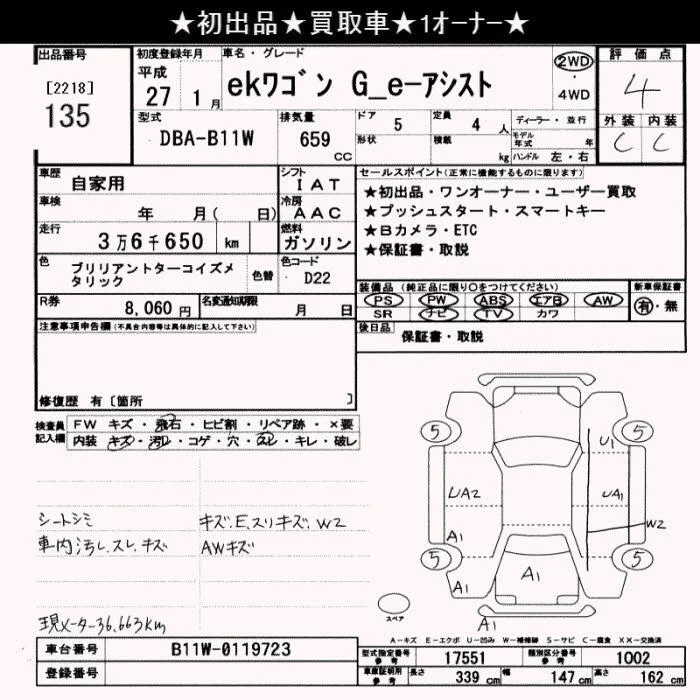 ★初出品★買取車★1オーナー★
出品番号
[2218]
135
初度登録年月
平成
27 1月
車名・グレード
ekワゴン G_e-アシスト
2WD
4WD
評価点
4
外装 内装
C C
型式
DBA-B11W
排気量
659
CC
ドア 5
形状
定員 4 人
積載 kg
ディーラー・並行
モデル年式 年
ハンドル 左・右
車歴 自家用
車検 年 月( 日)
走行 3万6千650 km
シフト IAT
冷房 AAC
燃料 ガソリン
色 ブリリアントターコイズメタリック
色替
色コード D22
R券 8,060円
名変通知期限 月 日
セールスポイント(正常に機能するものに限ります)
★初出品・ワンオーナー・ユーザー買取
★プッシュスタート・スマートキー
★Bカメラ・ETC
★保証書・取説
装備品(純正品に限り○をつけてください)
PS PW ABS エアB AW
SR ナビ TV カワ
新車保証書
有・無
後日品 保証書・取説
注意事項申告欄(不具合内容等は具体的に記入して下さい)
修復歴 有〔箇所 〕
検査員記入欄
FW キズ・飛石・ヒビ割・リペア跡・×要
内装 キズ・汚レ・コゲ・穴・スレ・キレ・破レ
シートシミ
車内汚し,スレ,キズ
キズ,E,スリキズ,W2
AWキズ
現メーター36,663km
5 5
U1
UA2 UA1
W2
A1
5 5
A1 A1
A1
スペア
A-キズ E-エクボ U-凹み W-補修跡 S-サビ C-腐食 XX-交換済
車台番号 B11W-0119723
登録番号
型式指定番号 参考 17551
類別区分番号 参考 1002
車庫証明用 参考 長さ 339cm 幅 147cm 高さ 162cm